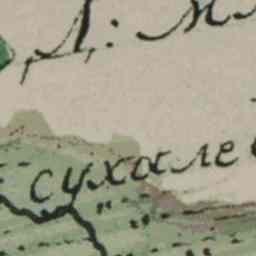 Д: М
сухале